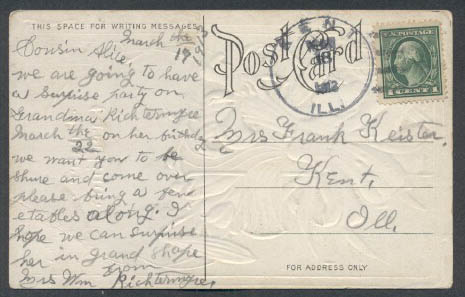 THIS SPACE FOR WRITING MESSAGES
March the
19
Cousin Alice,
we are going to have
a surprise party on
Grandma Richtemyre
March the on her birthday
22
we want you to be
shure and come over
please bring a few
etables along. I
hope we can surprise
her in grand shape
from
Mrs Wm Richtemyre
Post Card
KENT
MAR
1912
ILL.
1 CENT 1
Mrs Frank Keister.
Kent,
Ill.
FOR ADDRESS ONLY